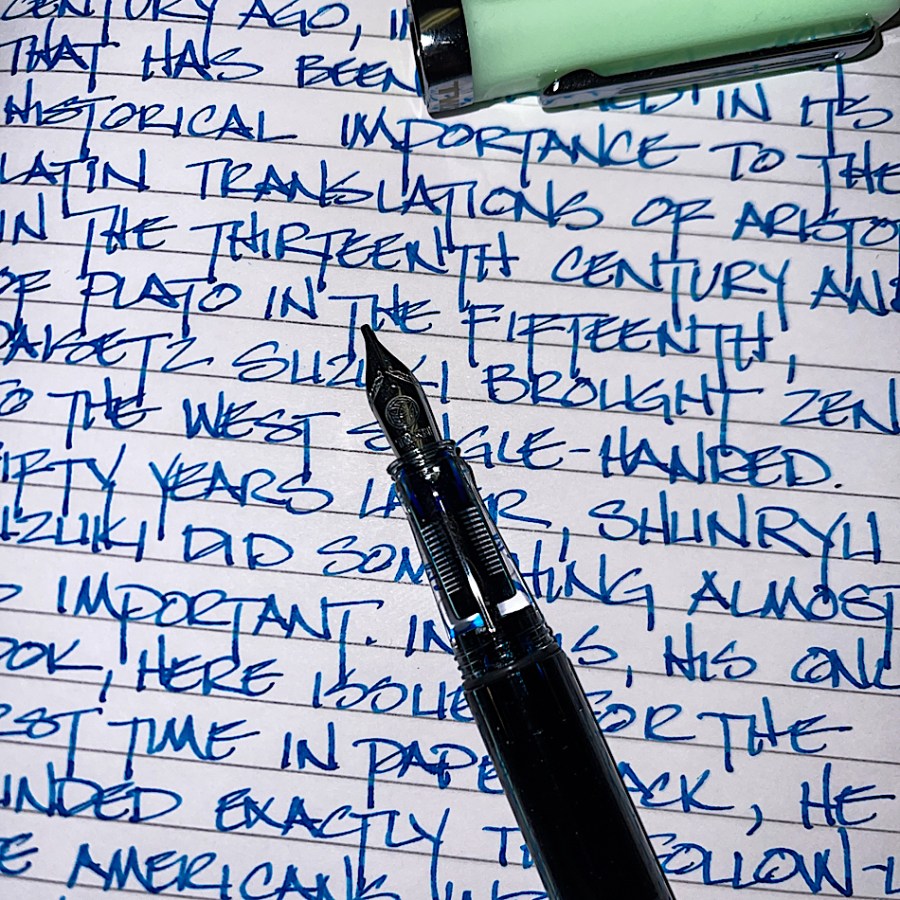 CENTURY AGO, IN
THAT HAS BEEN IN ITS
HISTORICAL IMPORTANCE TO THE
LATIN TRANSLATIONS OF ARISTO
IN THE THIRTEENTH CENTURY AND
OF PLATO IN THE FIFTEENTH,
DAISETZ SUZUKI BROUGHT ZEN
TO THE WEST SINGLE-HANDED.
FIFTY YEARS LATER, SHUNRYU
SUZUKI DID SOMETHING ALMOST
IMPORTANT. IN THIS, HIS ONL
OOK, HERE ISSUED FOR THE
RST TIME IN PAPERBACK, HE
UNDED EXACTLY THE FOLLOW-U
E AMERICANS